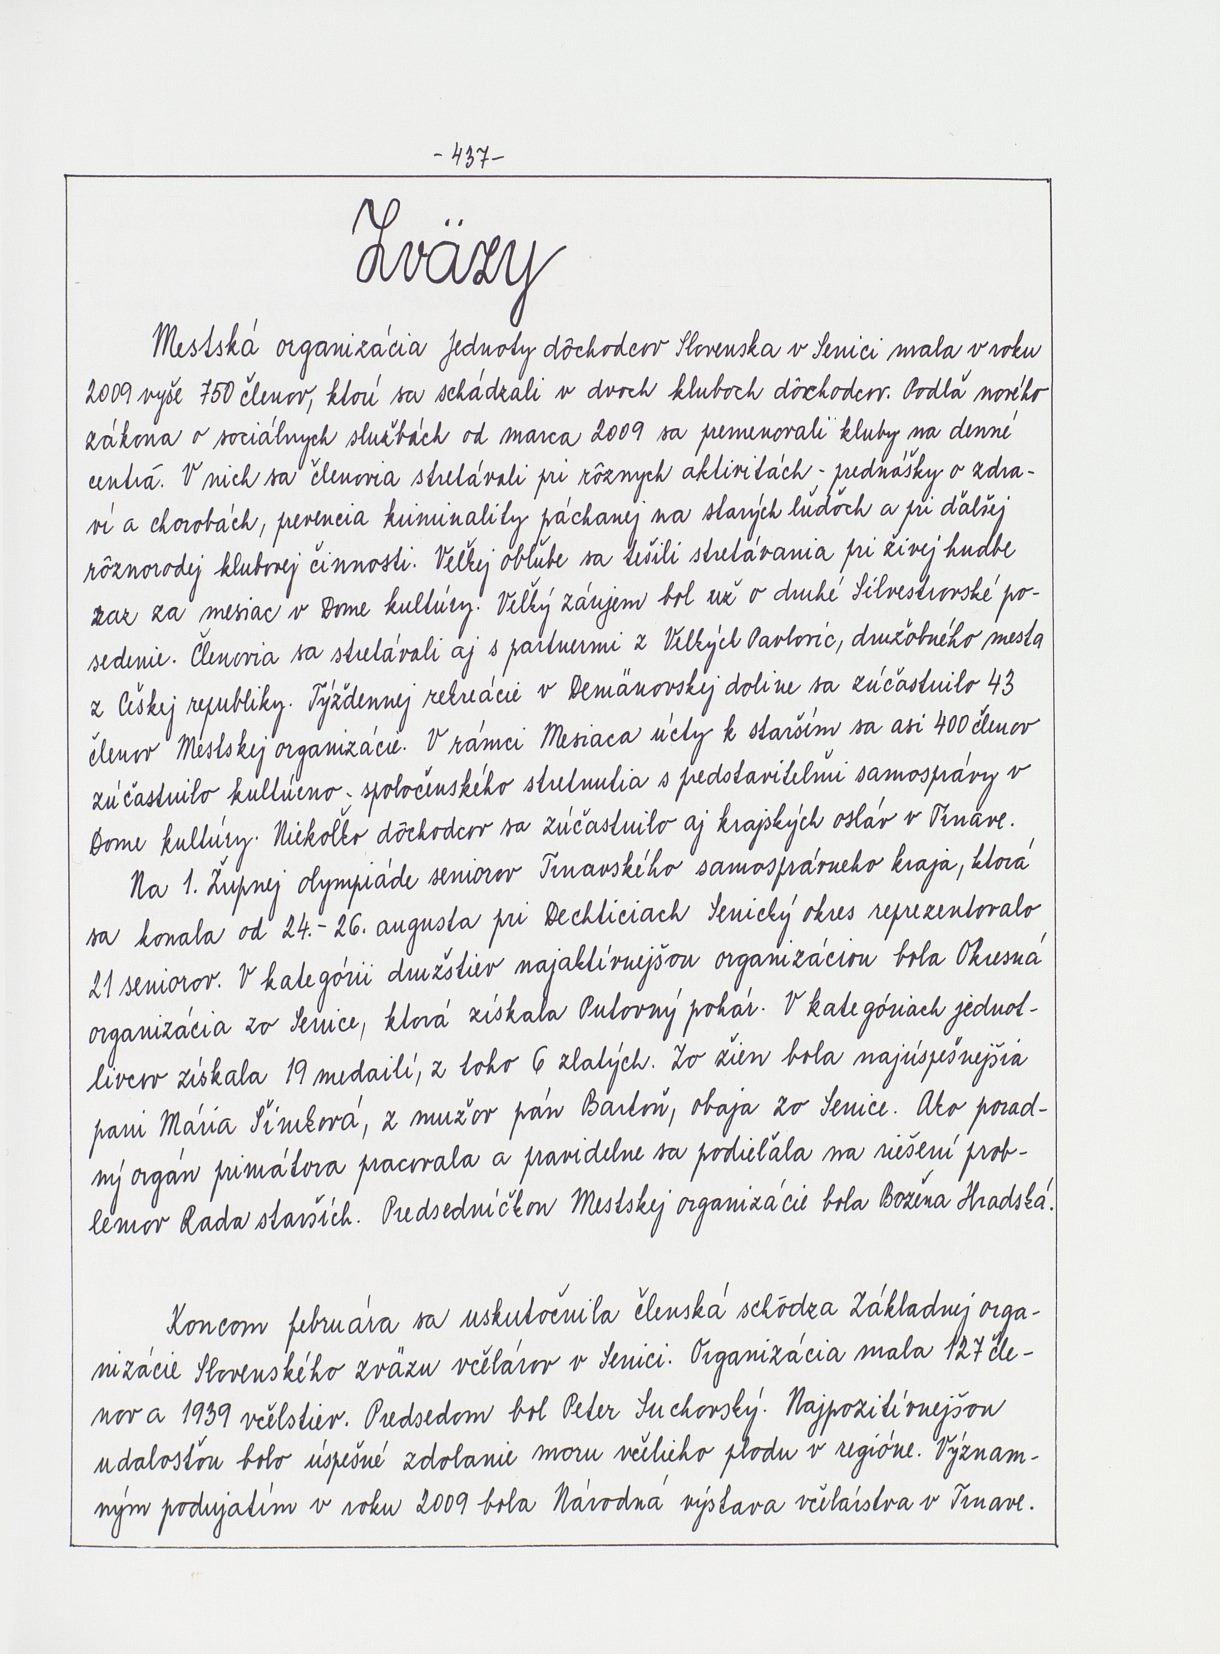 - 437 -
Zväzy
Mestská organizácia Jednoty dôchodcov Slovenska v Senici mala v roku
2009 vyše 750 členov, ktorí sa schádzali v dvoch kluboch dôchodcov. Podľa nového
zákona o sociálnych službách od marca 2009 sa premenovali kluby na denné
centrá. V nich sa členovia stretávali pri rôznych aktivitách - prednášky o zdra-
ví a chorobách, prevencia kriminality páchanej na starých ľuďoch a pri ďalšej
rôznorodej klubovej činnosti. Veľkej obľube sa tešili stretávania pri živej hudbe
raz za mesiac v Dome kultúry. Veľký záujem bol už o druhé Silvestrovské po-
sedenie. Členovia sa stretávali aj s partnermi z Veľkých Pavlovíc, družobného mesta
z Českej republiky. Týždennej rekreácie v Demänovskej doline sa zúčastnilo 43
členov Mestskej organizácie. V rámci Mesiaca úcty k starším sa asi 400 členov
zúčastnilo kultúrno-spoločenského stretnutia s predstaviteľmi samosprávy v
Dome kultúry. Niekoľko dôchodcov sa zúčastnilo aj krajských osláv v Trnave.
Na 1. Župnej olympiáde seniorov Trnavského samosprávneho kraja, ktorá
sa konala od 24.-26. augusta pri Dechticiach Senický okres reprezentovalo
21 seniorov. V kategórii družstiev najaktívnejšou organizáciou bola Okresná
organizácia zo Senice, ktorá získala Putovný pohár. V kategóriach jednot-
livcov získala 19 medailí, z toho 6 zlatých. Zo žien bola najúspešnejšia
pani Mária Šimková, z mužov pán Bartoň, obaja zo Senice. Ako porad-
ný orgán primátora pracovala a pravidelne sa podieľala na riešení prob-
lémov Rada starších. Predsedníčkou Mestskej organizácie bola Božena Hradská.
Koncom februára sa uskutočnila členská schôdza Základnej orga-
nizácie Slovenského zväzu včelárov v Senici. Organizácia mala 127 čle-
nov a 1939 včelstiev. Predsedom bol Peter Suchovský. Najpozitívnejšou
udalosťou bolo úspešné zdolanie moru včelieho plodu v regióne. Význam-
ným podujatím v roku 2009 bola Národná výstava včelárstva v Trnave.